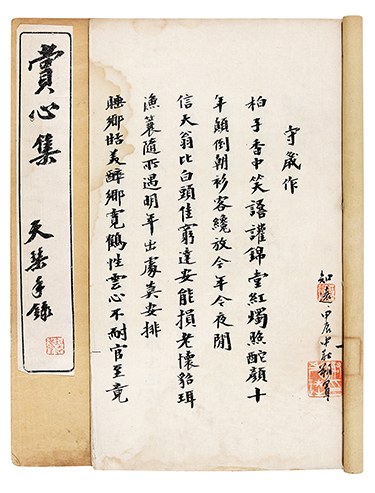 賞心集
天琹手錄
守歲作
柏子香中笑語讙錦堂紅燭照酡顏十
年顛倒朝衫客纔放今年今夜閒
信天翁比白頭佳窮達安能損老懷貂珥
漁蓑隨所遇明年出處安排
睡鄉恬美醉鄉寬鶴性雲心不耐官至竟
知遠 甲辰中秋